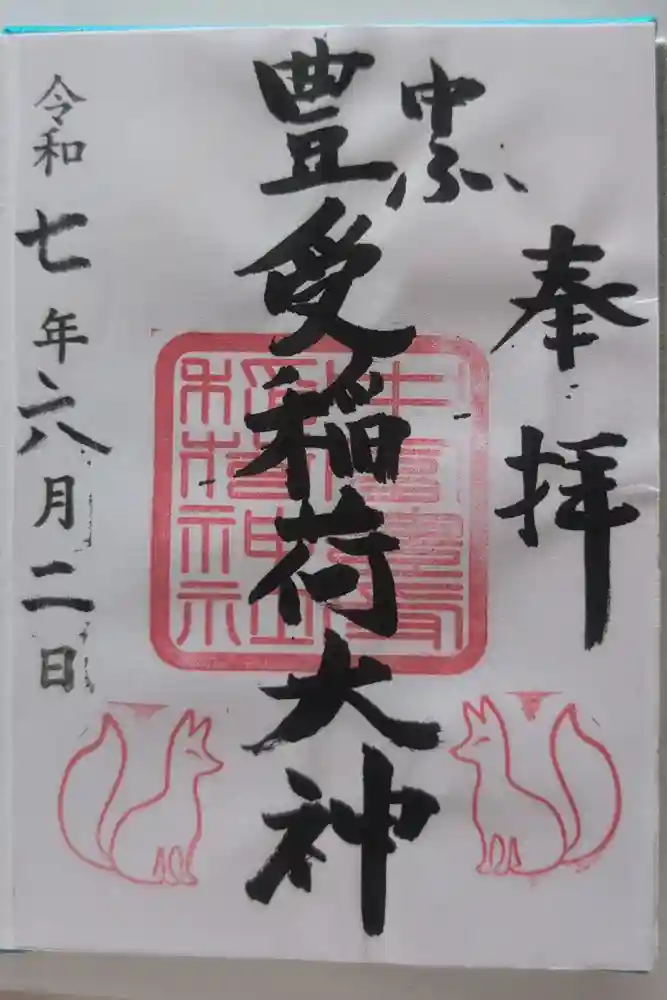 奉拝
豊受稲荷大神
令和七年六月二日